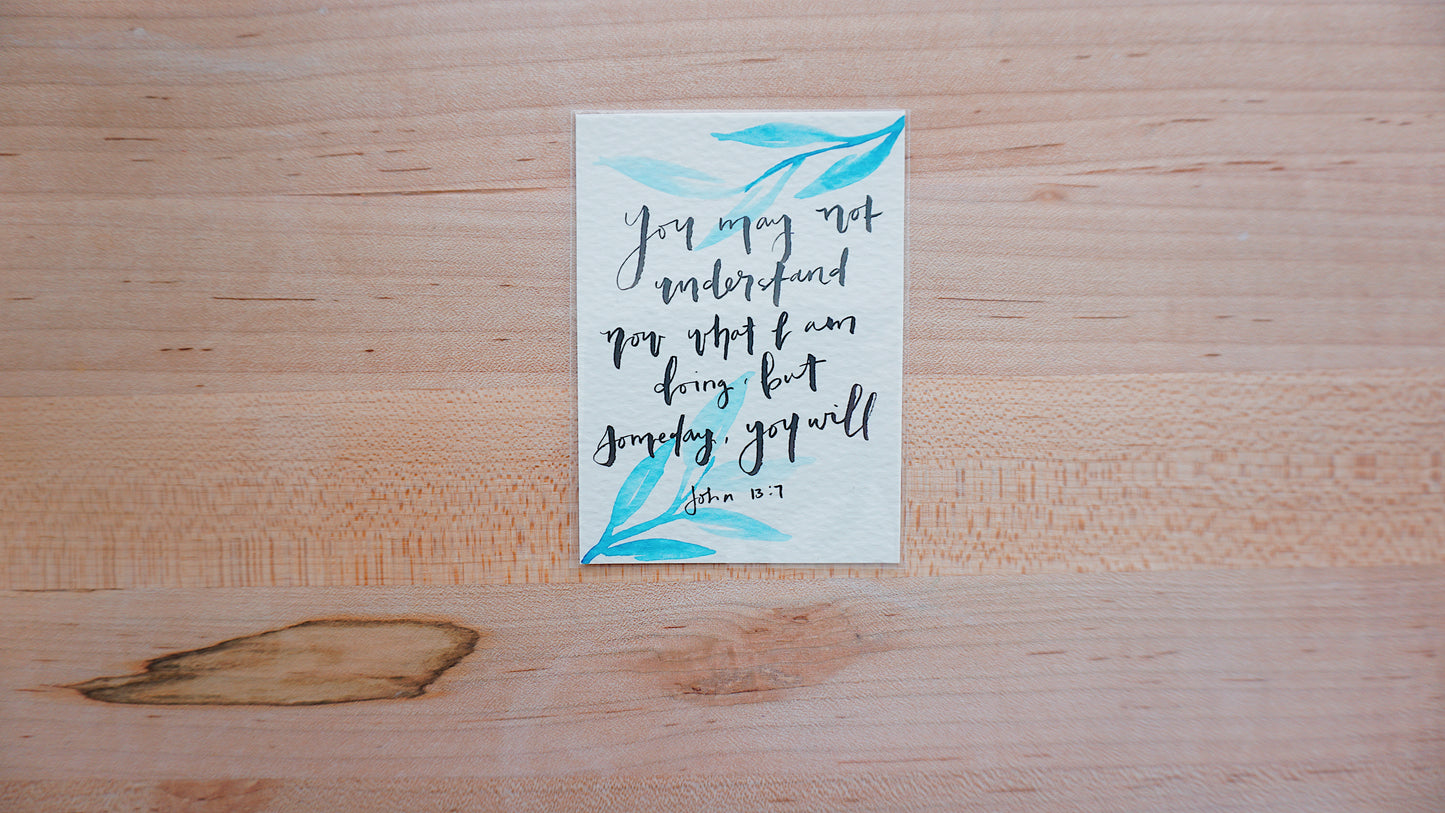 You may not
understand
now what I am
doing, but
someday, you will
John 13:7